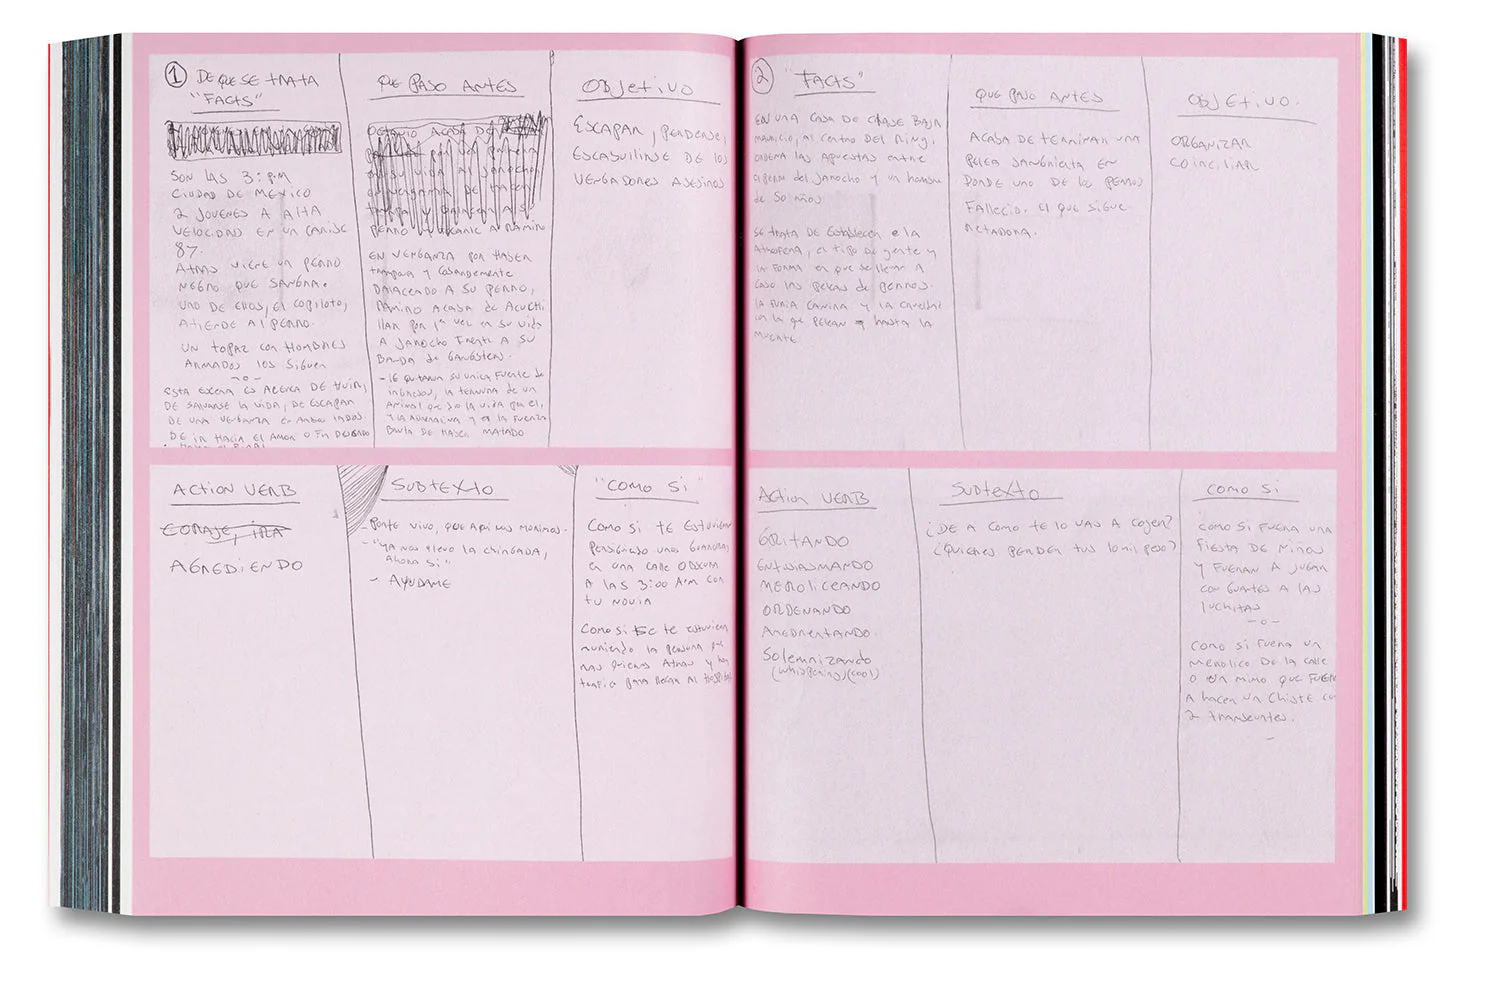 ① DE QUE SE TRATA
"FACTS"
SON LAS 3: PM
CIUDAD DE MEXICO
2 JOVENES A ALTA
VELOCIDAD EN UN
87.
ATRAS VIENE UN PERRO
NEGRO QUE SANGRA.
UNO DE ELLOS, EL COPILOTO,
ATIENDE AL PERRO.
UN TOPAZ CON HOMBRES
ARMADOS LOS SIGUEN
-o-
ESTA ESCENA ES ACERCA DE HUIR,
DE SALVARSE LA VIDA, DE ESCAPAR
DE UNA VENGANZA EN AMBOS LADOS.
DE IR HACIA EL AMOR O
QUE PASO ANTES
OCTAVIO ACABA DE
PERRO
EN VENGANZA POR HABER
trampara y Cobardemente
BALACEADO A SU PERRO,
RAMIRO ACABA de Acuchi
llar por 1ª vez en su vida
A JAROCHO Frente A SU
BANDA de GANGSTERS.
- LE QUITARON SU UNICA FUENTE DE
INGRESOS, LA TERNURA DE UN
ANIMAL QUE DIO LA VIDA POR EL,
BRUTA DE HABER MATADO
OBJETIVO
ESCAPAR, PERDERSE,
ESCABULIRSE DE LOS
VENGADORES ASESINOS
ACTION VERB
CORAJE, IRA
AGREDIENDO
SUBTEXTO
PONTE VIVO, QUE AQUI NOS MORIMOS.
- "YA NOS LLEVO LA CHINGADA,
AHORA SI"
- AYUDAME
"COMO SI"
COMO SI TE ESTUVIERAN
PERSIGUIENDO UNOS GUARURAS
EN UNA CALLE OBSCURA
A LAS 3:00 A.M CON
TU NOVIA
COMO SI SE TE ESTUVIERA
MURIENDO LA PERSONA QUE
MAS QUIERES ATRAS Y HAY
TRAFICO PARA LLEGAR AL HOSPITAL
② "FACTS"
EN UNA CASA DE CLASE BAJA
MAURICIO, AL CENTRO DEL RING,
ORDENA LAS APUESTAS ENTRE
el perro del JAROCHO y un hombre
de 50 Años
SE TRATA DE ESTABLECER la
ATMOSFERA, EL TIPO DE gente y
LA FORMA en que se llevan A
CABO LAS PELEAS DE PERROS.
LA FURIA CANINA Y LA CRUELDAD
CON LA QUE PELEAN HASTA LA
MUERTE.
QUE PASO ANTES
ACABA DE TERMINAR UNA
PELEA SANGRIENTA EN
DONDE UNO DE LOS PERROS
FALLECIO. EL QUE SIGUE
OBJETIVO.
ORGANIZAR
ACTION VERB
GRITANDO
ENTUSIASMANDO
MEROLICEANDO
ORDENANDO
AMEDRENTANDO.
Solemnizando
(whispering)(cool)
SUBTEXTO
¿DE A COMO TE LO VAS A COGER?
¿QUIERES PERDER TUS 10 mil PESOS?
COMO SI
COMO SI FUERA UNA
FIESTA DE NIÑOS
Y FUERAN A JUGAR
CON GUANTES A LAS
LUCHITAS
-o-
COMO SI FUERA UN
MEROLICO DE LA CALLE
O UN MIMO QUE FUERA
A HACER UN CHISTE CON
2 TRANSEUNTES.